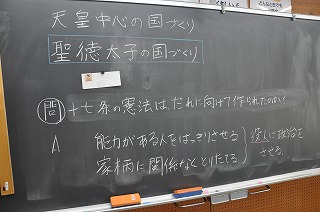 天皇中心の国づくり
聖徳太子の国づくり
問 十七条の憲法はだれに向けて作られたのか?
A 能力がある人をはっきりさせる
家柄に関係なくとりたてる
役人に政治を
させる